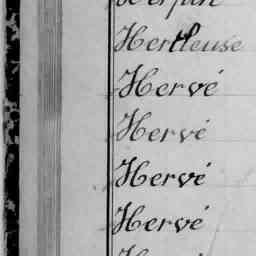 Hertleuse
Hervé
Hervé
Hervé
Hervé